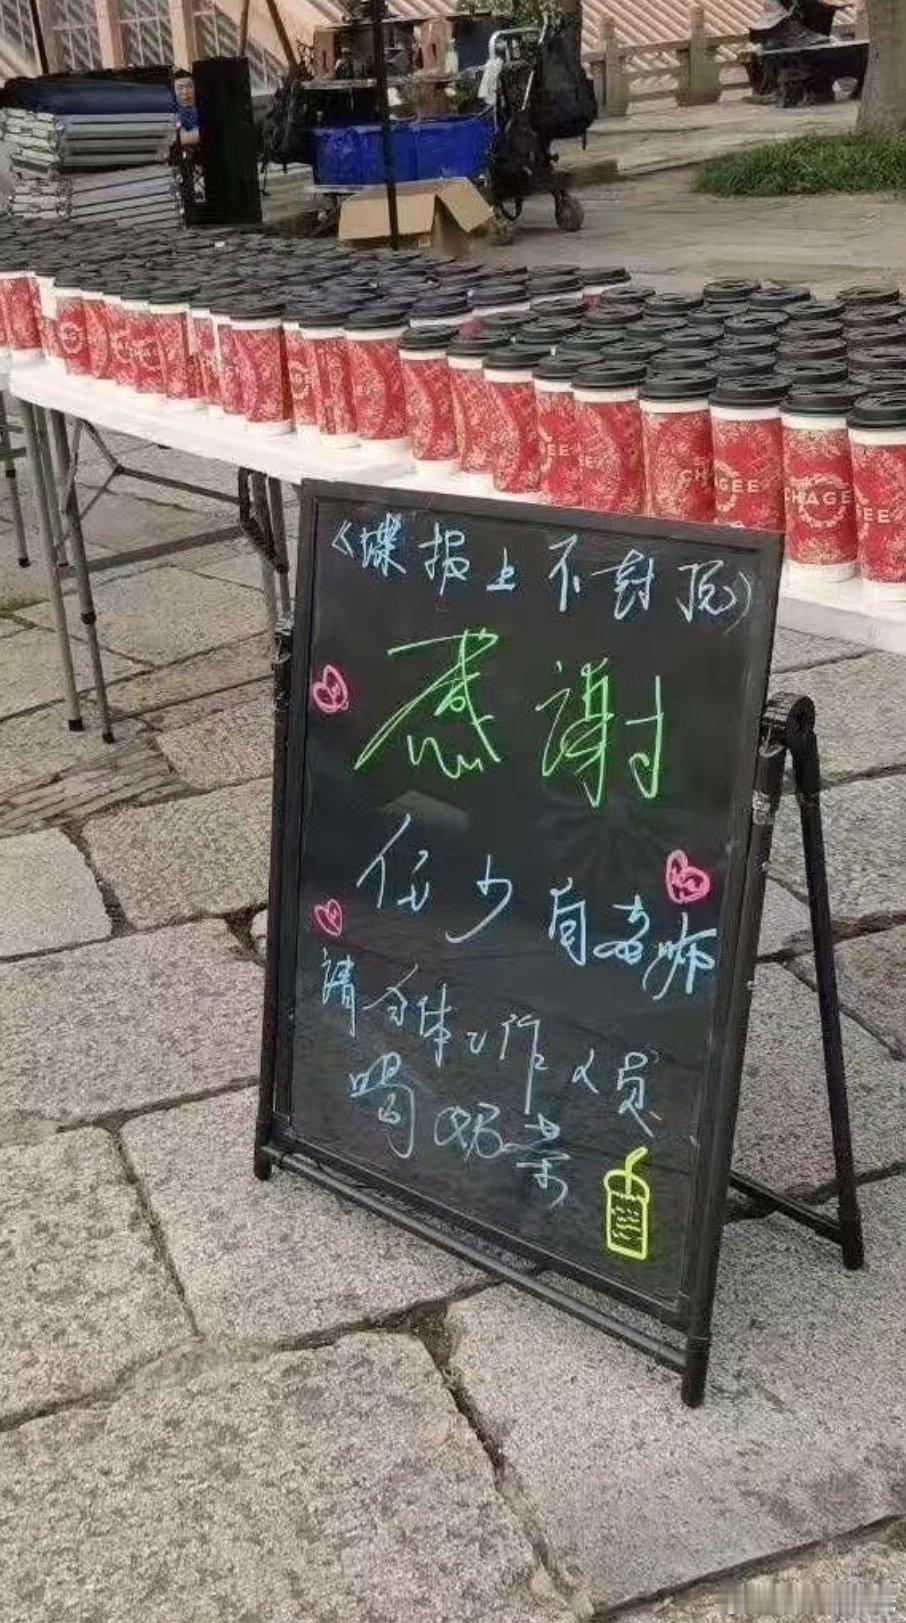 CHAGEE
CHAGEE
《谍报上不封顶》
感謝
任少白老师
請全体工作人员
喝奶茶